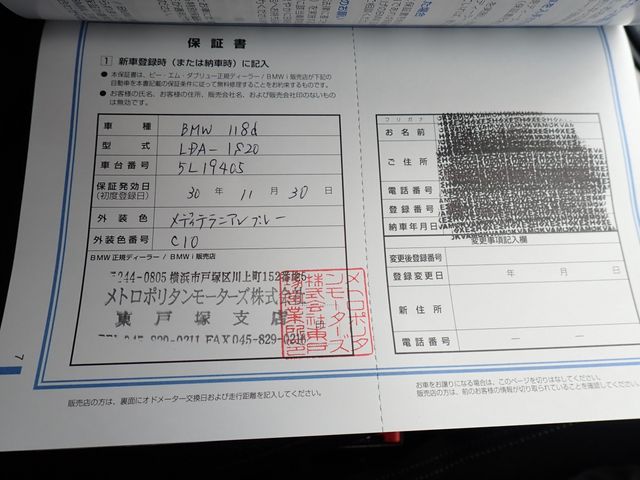 保証書
1 新車登録時(または納車時)に記入
● 本保証書は、ビー・エム・ダブリュー正規ディーラー/BMW i 販売店が下記の
自動車を本書記載の保証条件に従って無料修理することをお約束するものです。
● お客様の氏名、お客様の住所、販売会社名、および販売会社印のないもの
は無効です。
車種 BMW 118d
型式 LDA-1S20
車台番号 5L19405
保証発効日
(初度登録日) 30 年 11 月 30 日
外装色 メディテラニアンブルー
外装色番号 C10
BMW正規ディーラー/BMW i 販売店
〒244-0805 横浜市戸塚区川上町152番地5
メトロポリタンモーターズ株式会社
東戸塚支店
TEL 045-829-0211 FAX 045-829-0216
メトロポリタ
ンモーターズ
株式会社東戸
塚営業所之印
フリガナ
お名前
ご住所
電話番号
登録番号
納車年月日
変更事項記入欄
変更後登録番号
登録変更日 年 月 日
新住所
電話番号 — —
7
販売店の方は、裏面にオドメーター交換日および走行距離を記入してください。
お車をお譲りになる場合は、このページを切りはなしてください。
販売店の方は、前のお客様の情報が切り取られていることを確認してください。